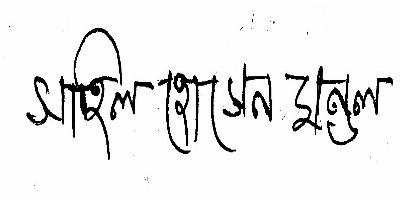 সাহিল হোসেন মুনুল